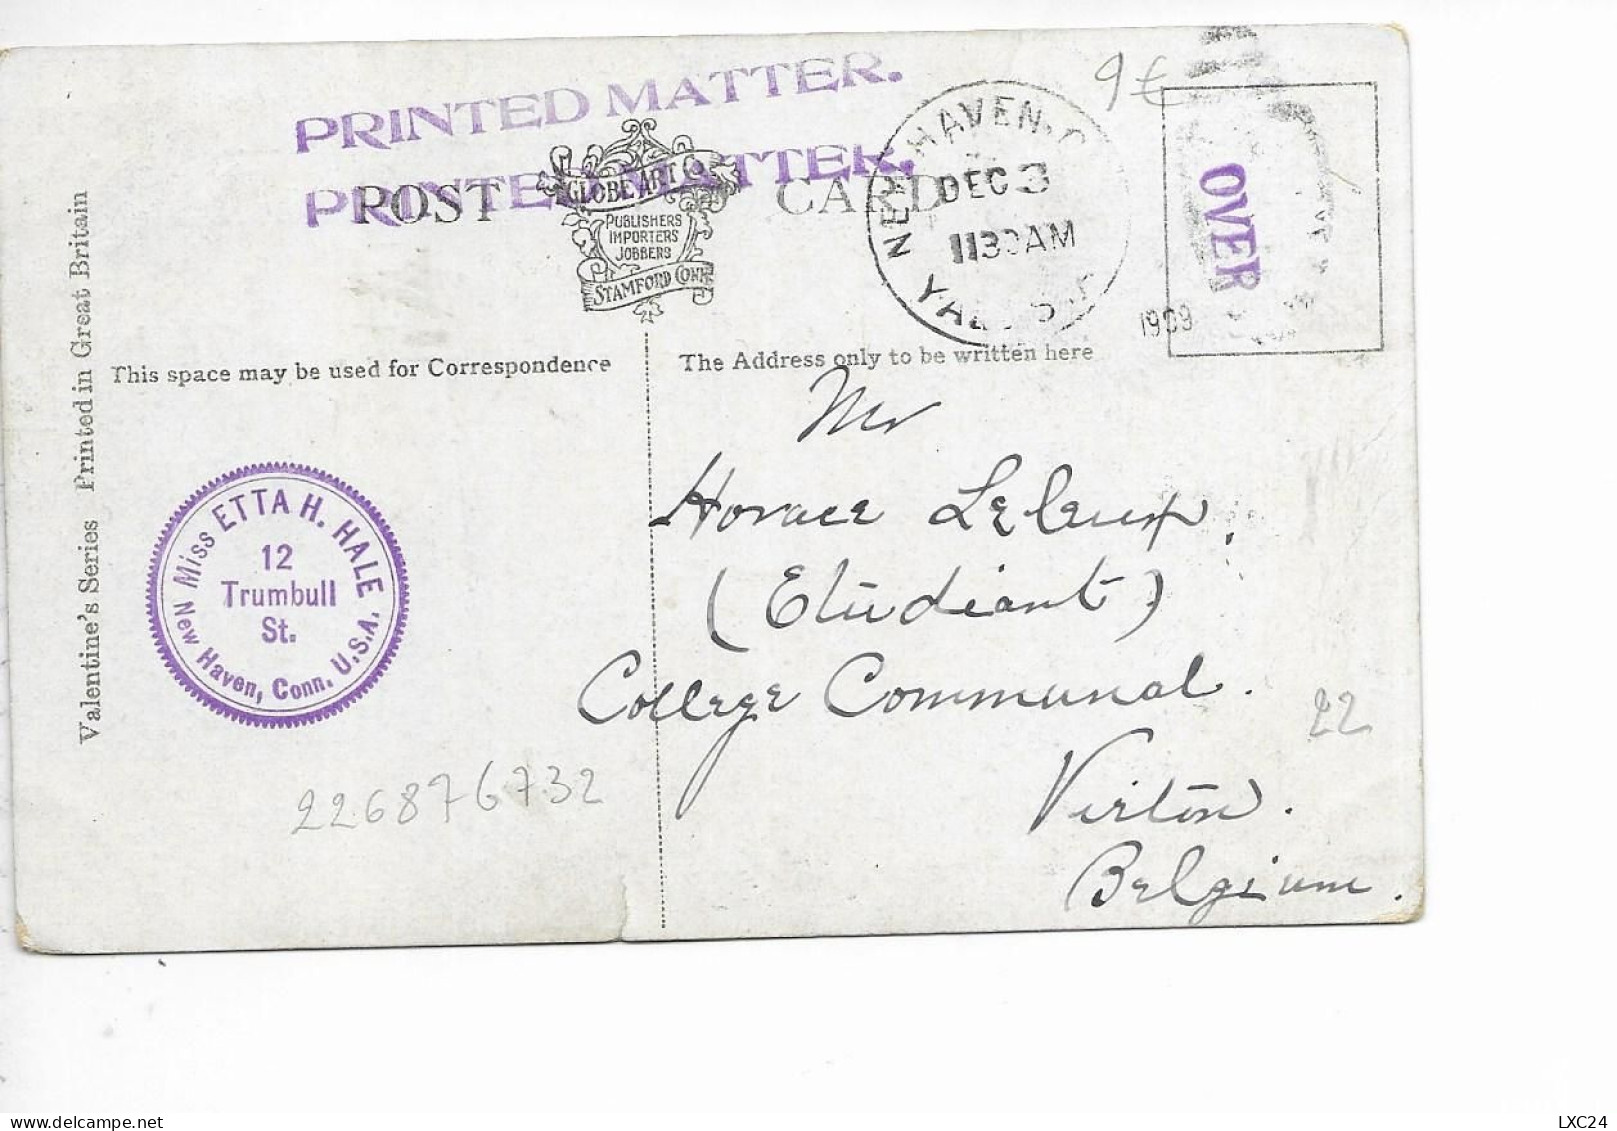 PRINTED MATTER.
PRINTED MATTER.
POST CARD
GLOBE ART Co.
PUBLISHERS
IMPORTERS
JOBBERS
STAMFORD CONN.
NEW HAVEN, C
DEC 3
1130AM
1909
9€
OVER
Valentine's Series Printed in Great Britain
This space may be used for Correspondence
The Address only to be written here
Miss ETTA H. HALE
12
Trumbull
St.
New Haven, Conn. U.S.A.
Mr
Horace
(Etudiant)
College Communal.
Virton.
Belgium.
22
226876732
LXC24